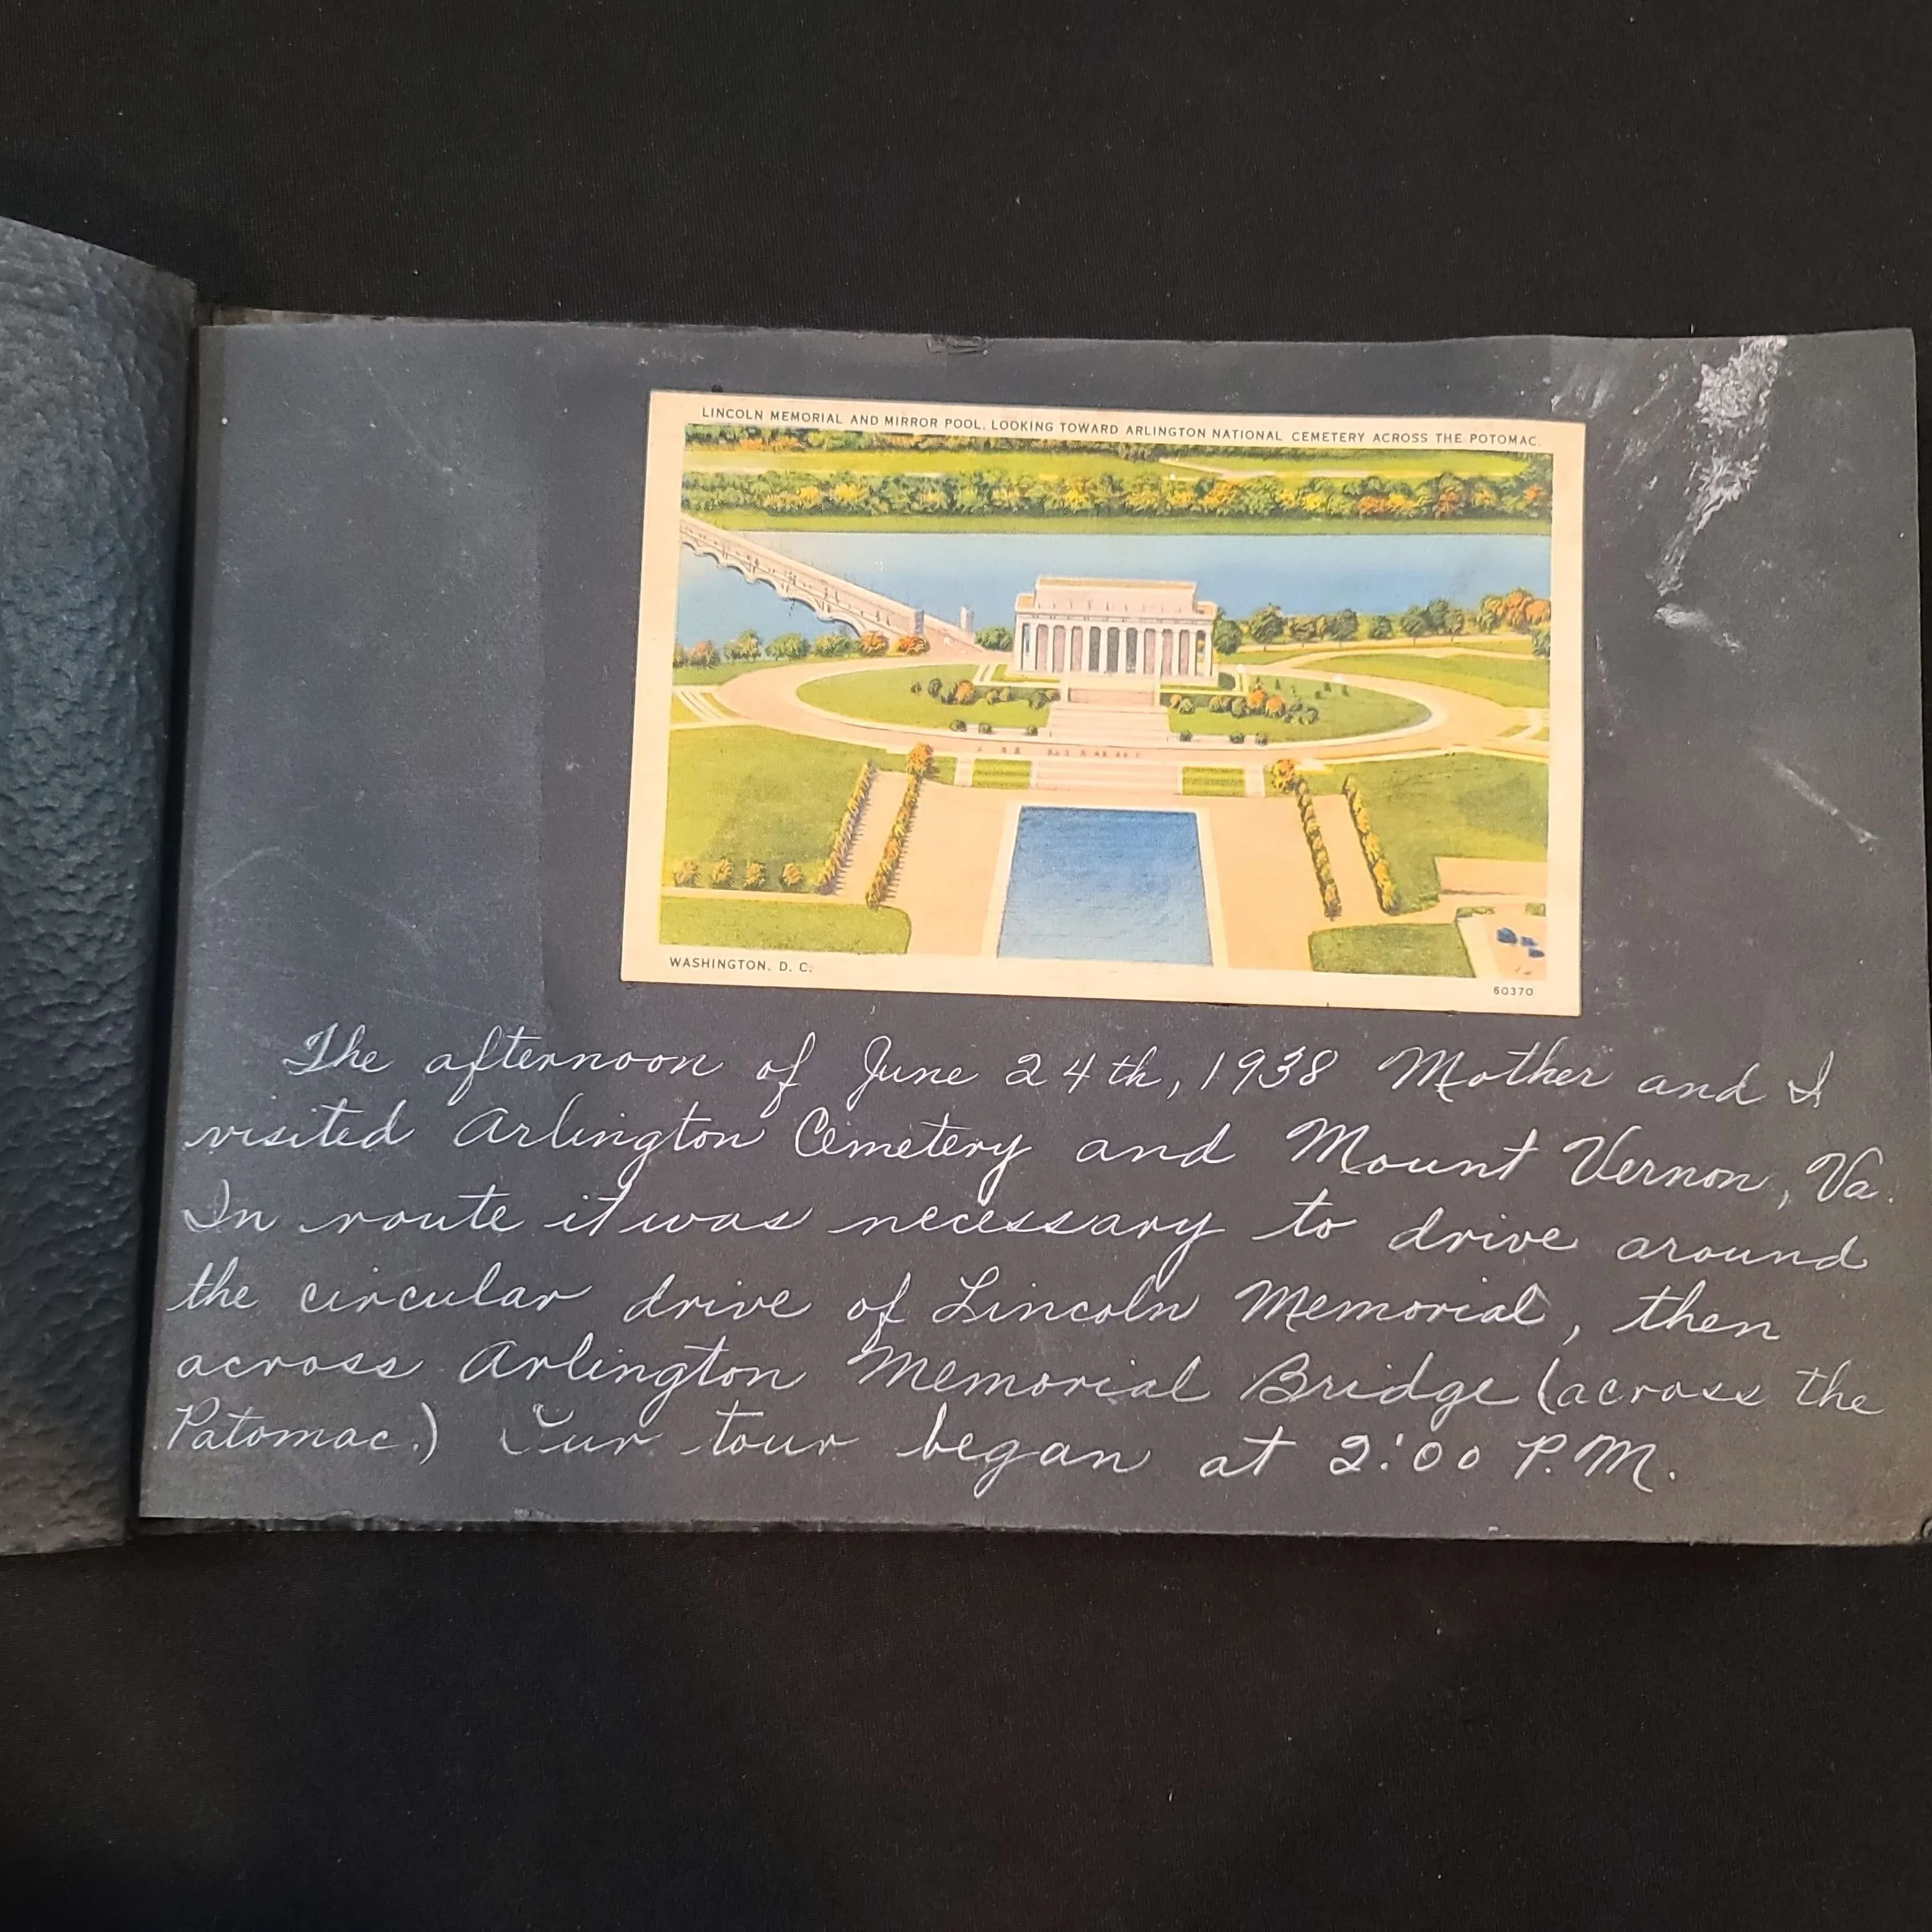 LINCOLN MEMORIAL AND MIRROR POOL, LOOKING TOWARD ARLINGTON NATIONAL CEMETERY ACROSS THE POTOMAC.
WASHINGTON, D. C.
60370
The afternoon of June 24th, 1938 Mother and I
visited Arlington Cemetery and Mount Vernon, Va.
In route it was necessary to drive around
the circular drive of Lincoln Memorial, then
across Arlington Memorial Bridge (across the
Patomac.) Our tour began at 2:00 P.M.